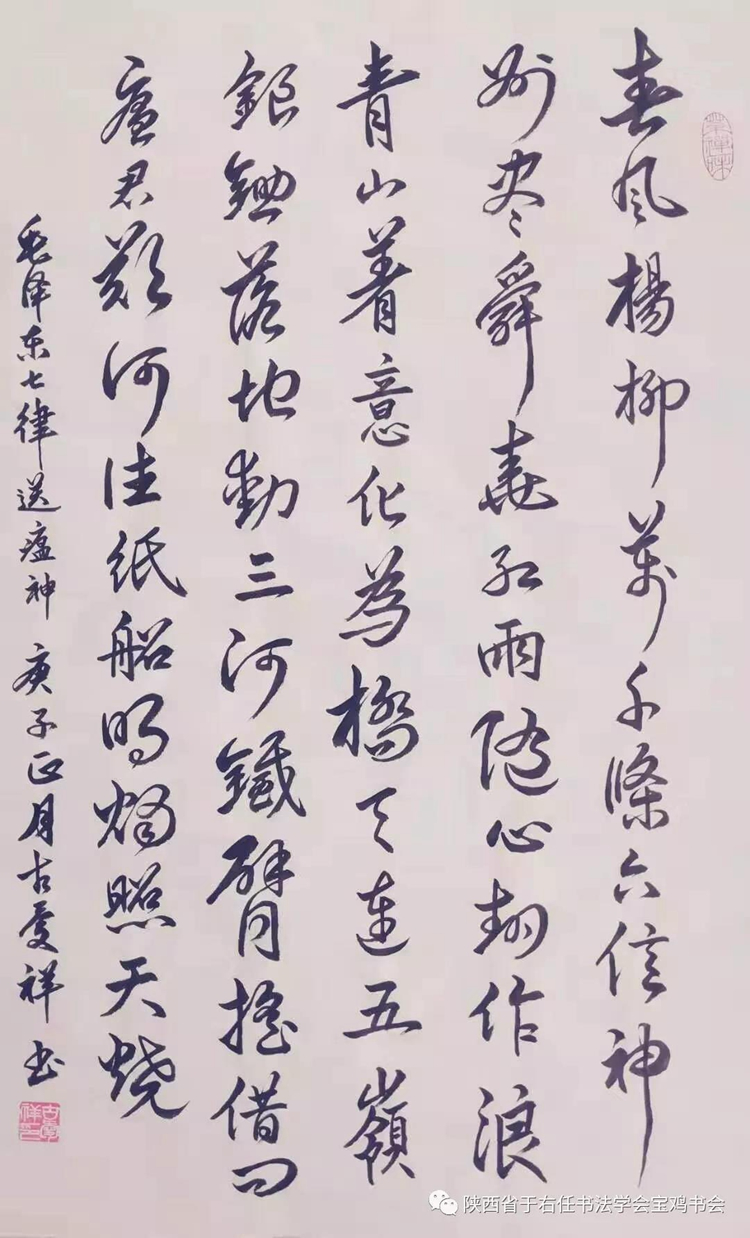 春风楊柳萬千條六億神
州尽舜堯红雨随心翻作浪
青山着意化為橋天連五嶺
銀鋤落地動三河鐵臂搖借问
瘟君欲何往纸船明燭照天烧
毛泽东七律送瘟神 庚子正月古爱祥书
陕西省于右任书法学会宝鸡书会